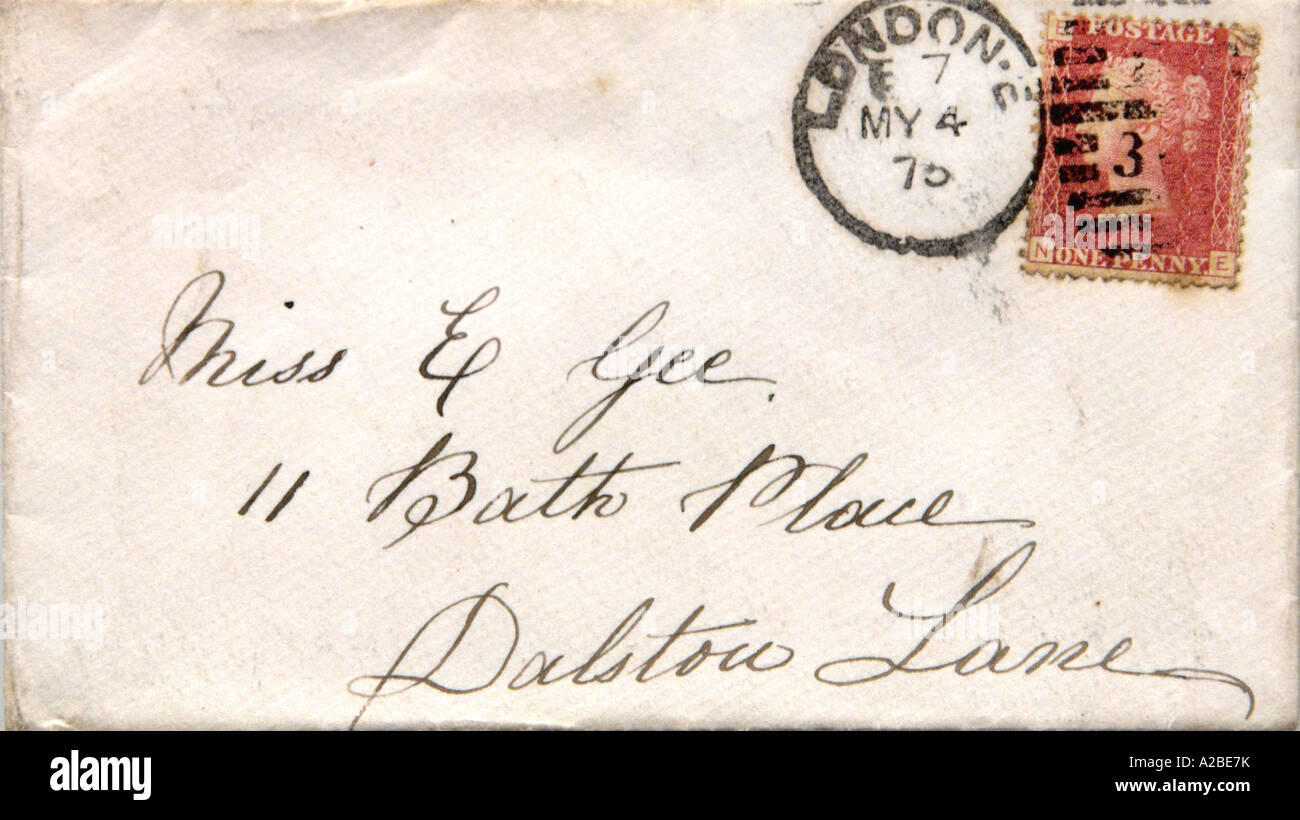 LONDON·E
F 7
MY 4
75
POSTAGE
E N
3
N ONE PENNY. E
Miss E Gee
11 Bath Place
Dalston Lane
alamy stock photo
A2BE7K
www.alamy.com